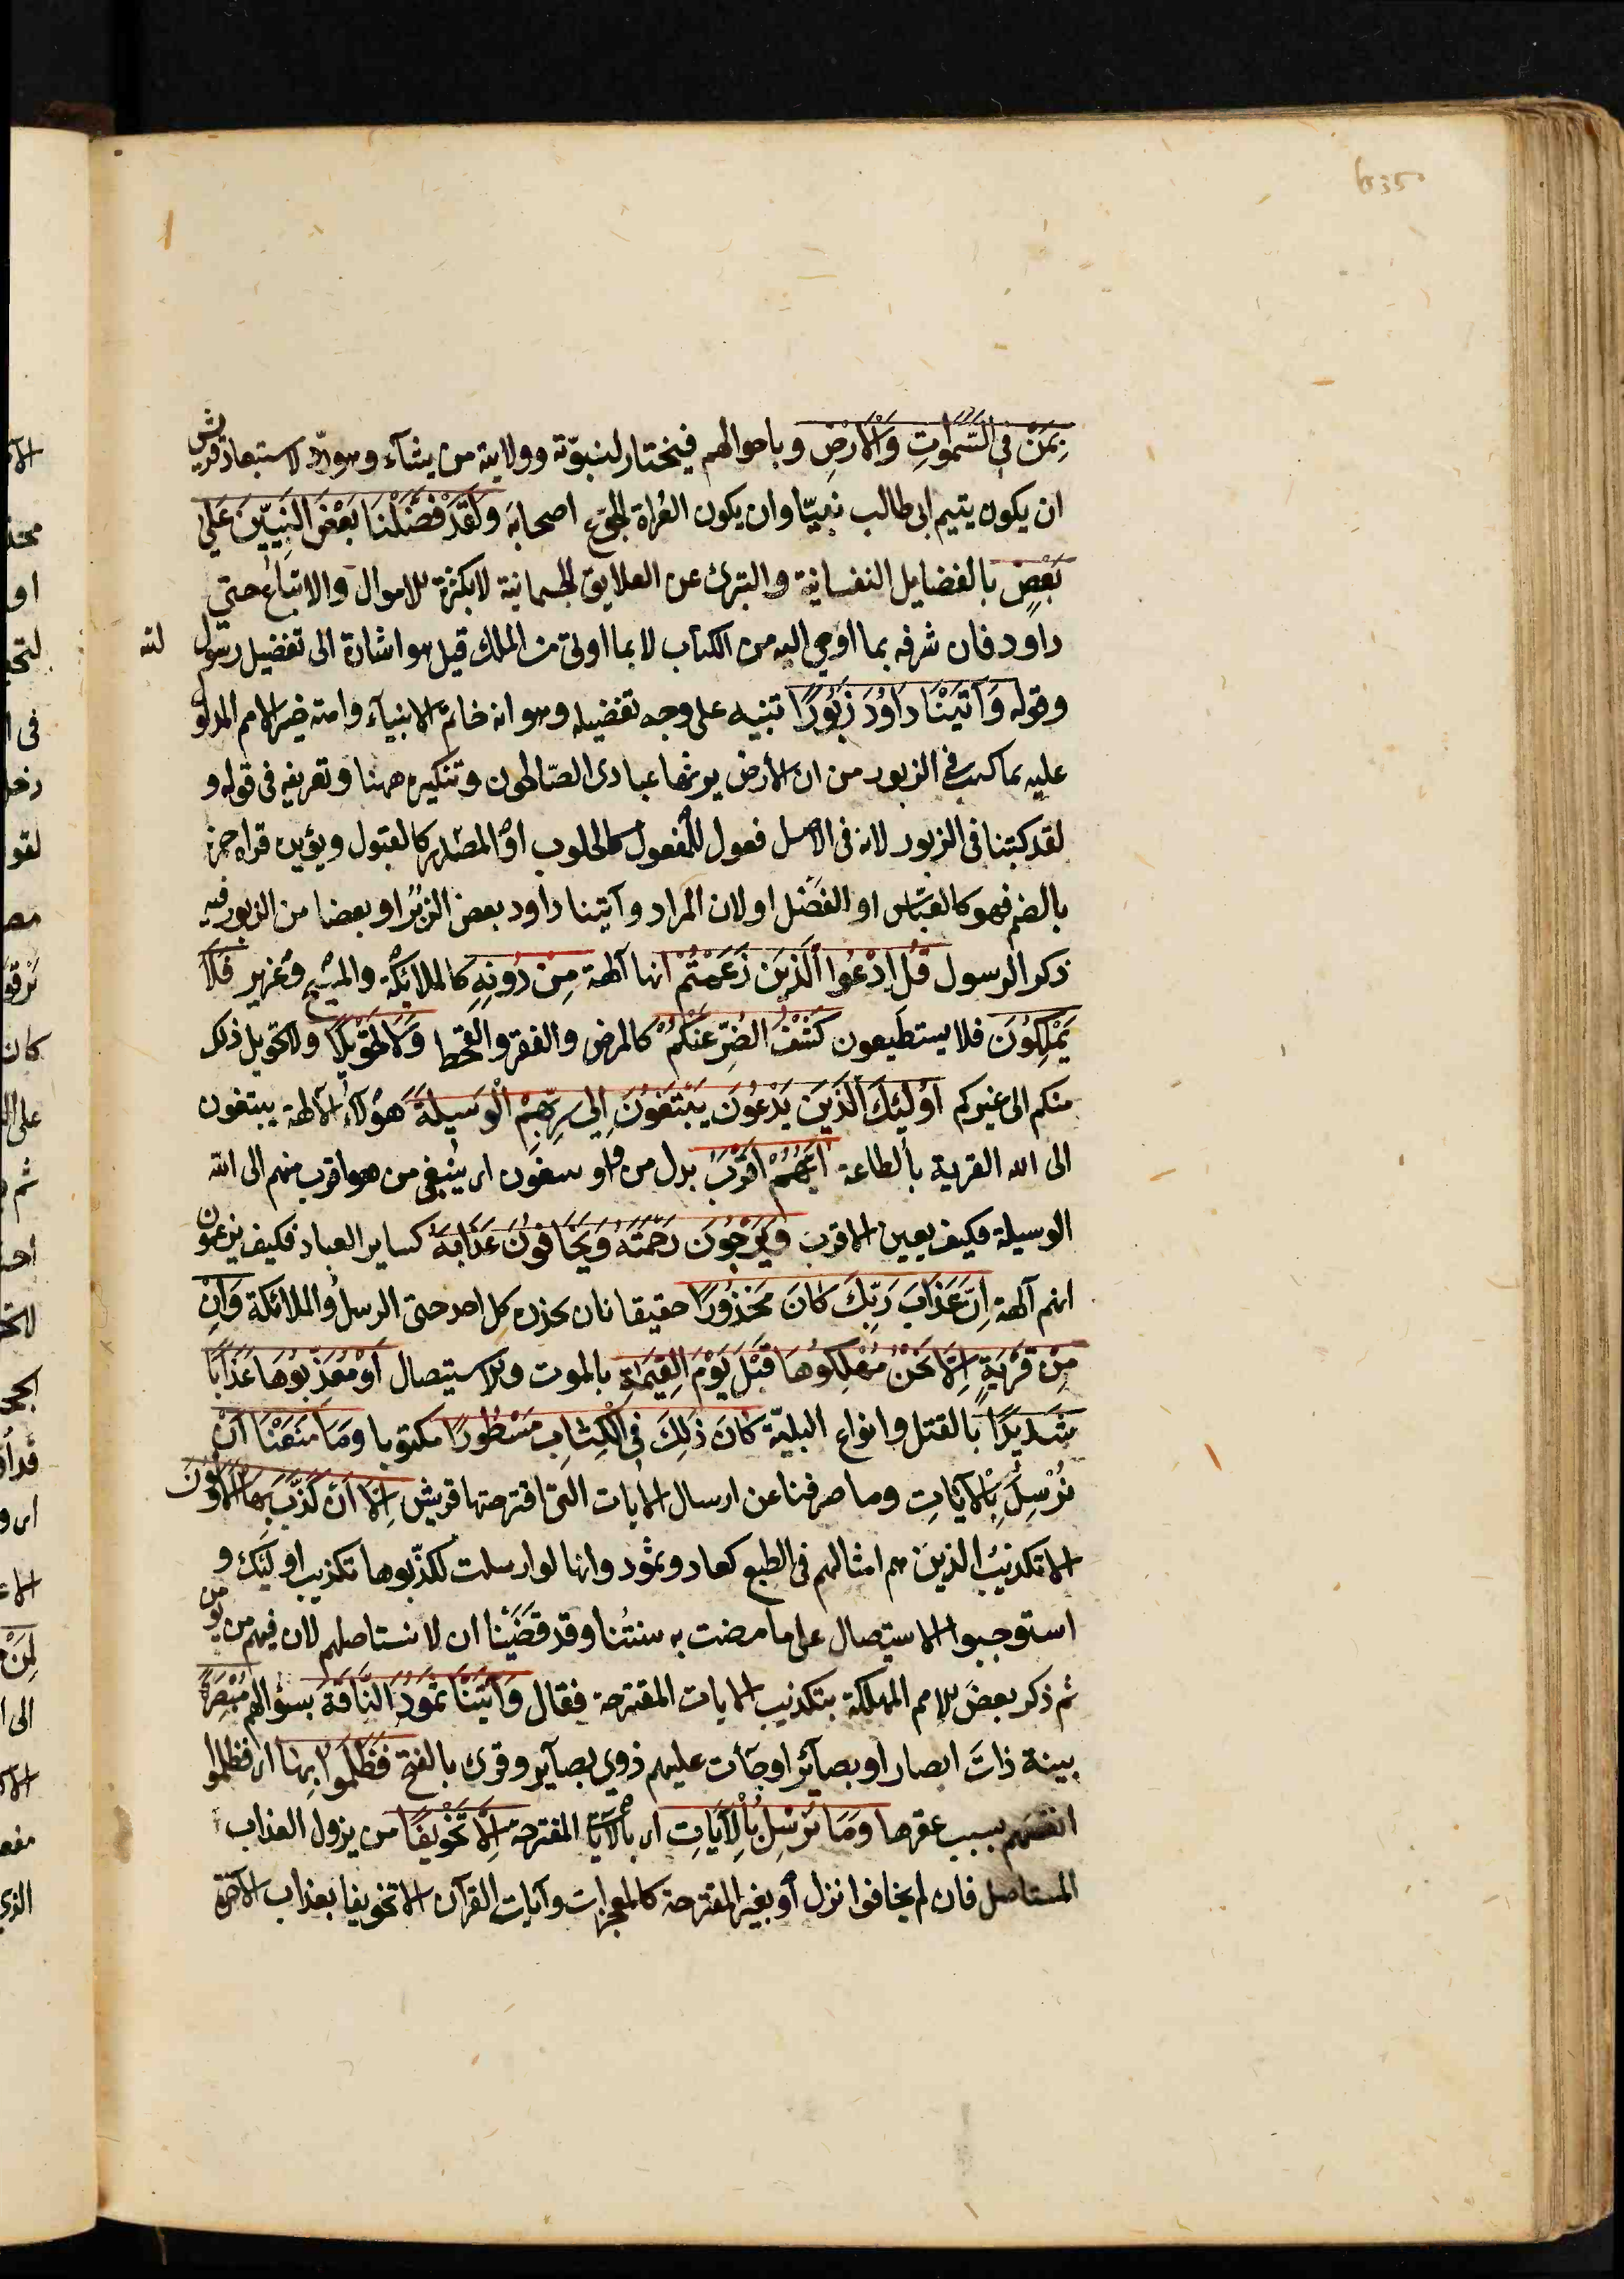 بِمَنْ فِي السَّمٰوَاتِ وَالْاَرْضِ وباحوالهم فيختار لنبوّته وولايته من يشآء وهو ردّ لاستبعاد قريش
ان يكون يتيم ابى طالب نبيّا وان يكون العُراة الجوّع اصحابَه وَلَقَدْ فَضَّلْنَا بَعْضَ النَّبِيّينَ عَلٰى
بَعْضٍ بالفضايل النفسانية والتبرئ عن العلايق الجسمانية لا بكثرة الاموال والاتباع حتى
داود فان شرفه بما اوحى اليه من الكتاب لا بما اوتى من الملك قيل هو اشارة الى تفضيل رسول الله
وقوله وَآتَيْنَا دَاوُدَ زَبُورًا تنبيه على وجه تفضيله وهو انه خاتم الانبيآء وامته خير الامم المدلول
عليه بما كتب فى الزبور من ان الأرض يرثها عبادى الصّالحون وتنكيره ههنا وتعريفه فى قوله و
لقد كتبنا فى الزبور لانه فى الاصل فعول للمفعول كالحلوب او المصدر كالقبول ويؤيده قراءة حمزة
بالضم فهو كالعبّاس او الفَضْل او لان المراد وآتينا داود بعض الزبُر او بعضا من الزبور فيه
ذكر الرسول قُلِ ادْعُوا الَّذِينَ زَعَمْتُمْ انها آلهة مِنْ دُونِهِ كالملائكة والمسيح وعُزير فَلَا
يَمْلِكُونَ فلا يستطيعون كَشْفَ الضُّرِّ عَنْكُمْ كالمرض والفقر والقحط وَلَا تَحْوِيلًا ولا تحويل ذلك
منكم الى غيركم اُولٰئِكَ الَّذِينَ يَدْعُونَ يَبْتَغُونَ اِلٰى رَبِّهِمُ الْوَسِيلَةَ هؤلآء الآلهة يبتغون
الى الله القربة بالطاعة اَيُّهُمْ اَقْرَبُ بدل من واو يبتغون اى يبتغى من هو اقرب منهم الى الله
الوسيلة فكيف بعين الاقرب وَيَرْجُونَ رَحْمَتَهُ وَيَخَافُونَ عَذَابَهُ كساير العباد فكيف يزعمون
انهم آلهة اِنَّ عَذَابَ رَبِّكَ كَانَ مَحْذُورًا حقيقا بان يحذره كل احد حتى الرسل والملائكة وَاِنْ
مِنْ قَرْيَةٍ اِلَّا نَحْنُ مُهْلِكُوهَا قَبْلَ يَوْمِ الْقِيٰمَةِ بالموت والاستيصال اَوْ مُعَذِّبُوهَا عَذَابًا
شَدِيدًا بالقتل وانواع البليّة كَانَ ذٰلِكَ فِى الْكِتَابِ مَسْطُورًا مكتوبا وَمَا مَنَعَنَا اَنْ
نُرْسِلَ بِالْآيَاتِ وما صرفنا عن ارسال الايات التى اقترحتها قريش اِلَّا اَنْ كَذَّبَ بِهَا الْاَوَّلُونَ
الا تكذيبُ الذين هم امثالهم فى الطبع كعاد وثمود وانها لو ارسلت لكذّبوها تكذيب اولئك و
استوجبوا الاستيصال على ما مضت به سنتُنا وقد قضَيْنا ان لا نستاصلهم لان فيهم من يؤمن
ثم ذكر بعضَ الامم المهلكة بتكذيب الايات المقترحة فقال وَآتَيْنَا ثَمُودَ النَّاقَةَ بسؤالهم مُبْصِرَةً
بينة ذاتَ ابصار او بصآئر او جآءت عليهم ذوي بصآير وقرئ بالفتح فَظَلَمُوا بِهَا اى فظلموا
انفسهم بسبب عقرها وَمَا نُرْسِلُ بِالْآيَاتِ اى بالآيات المقترحة اِلَّا تَخْوِيفًا من نزول العذاب
المستاصل فان لم يخافوا نزل أو بغير المقترحة كالمعجزات وآيات القرآن الا تخويفا بعذاب الآخرة